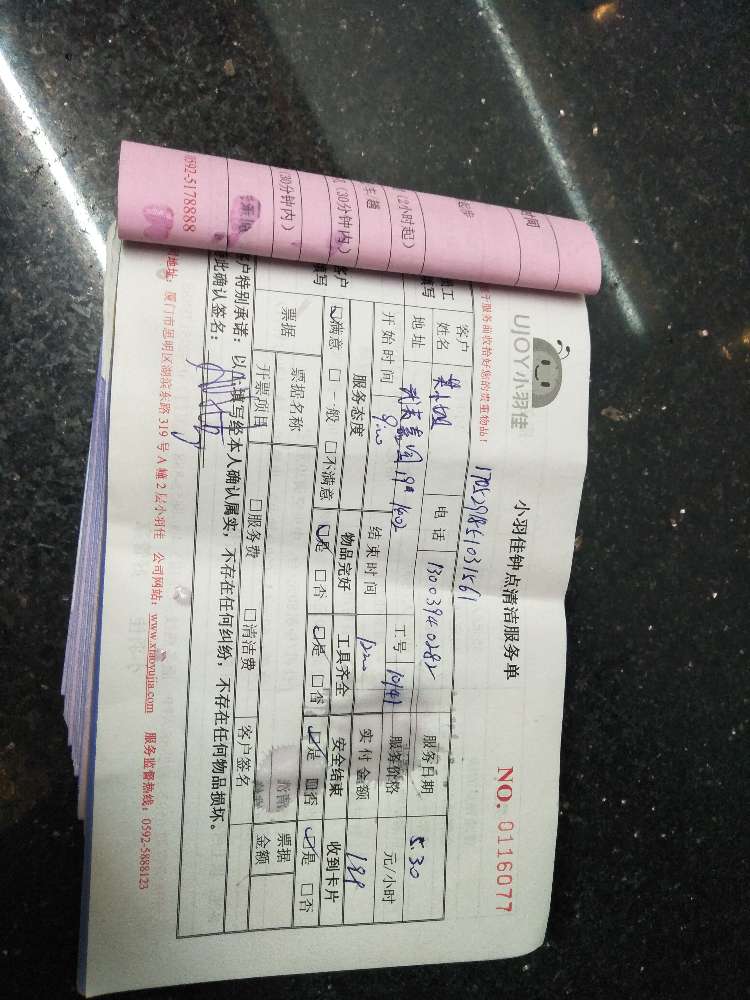 UJOY小羽佳
小羽佳钟点清洁服务单
NO. 0116077
服务前收拾好您的贵重物品!
客户姓名 电话 13003940282 服务日期 5.30
地址 19# 1602 工号 10141 服务价格 元/小时
开始时间 9:00 结束时间 1200 实付金额 198
服务态度 物品完好 工具齐全 安全结束 收到卡片
☑满意 □一般 □不满意 ☑是 □否 ☑是 □否 ☑是 □否 ☑是 □否
票据 票据名称 票据金额
开票项目 □服务费 □清洁费 客户签名
客户特别承诺:以上填写经本人确认属实,不存在任何纠纷,不存在任何物品损坏。
此确认签名:
地址:厦门市思明区湖滨东路319号A幢2层小羽佳 公司网站:www.xiaoyujia.com 服务监督热线:0592-5888123
时间
(2小时起)
(30分钟内)
30分钟内)
0592-5178888